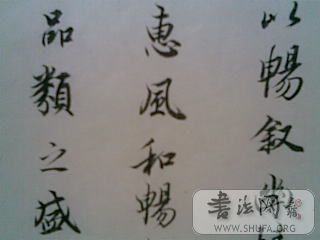 以暢叙幽
惠風和暢
品類之盛
書法網
WWW.SHUFA.ORG